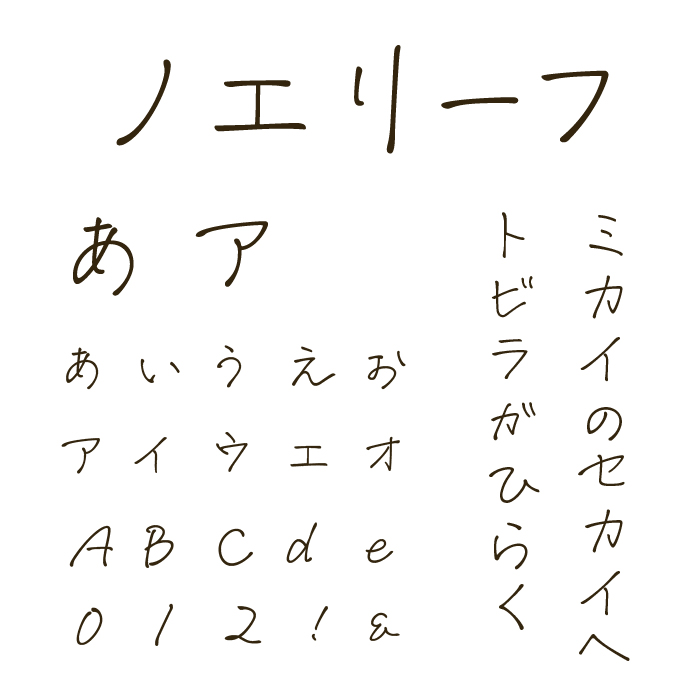 ノエリーフ
あ ア
あ い う え お
ア イ ウ エ オ
A B C d e
0 1 2 ! &
ミカイのセカイへ
トビラがひらく